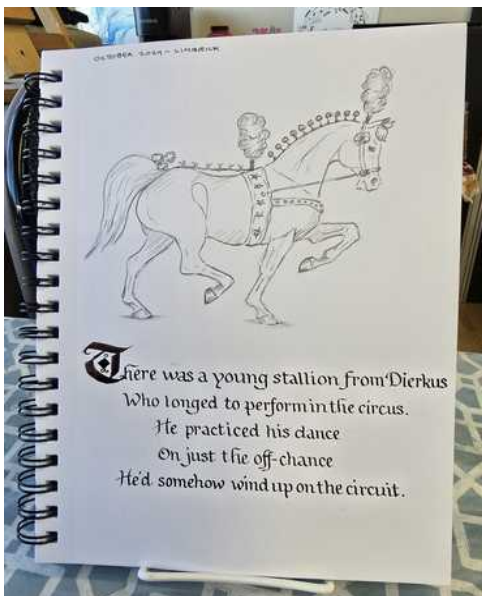 OCTOBER 2024 - LIMERICK
There was a young stallion from Dierkus
Who longed to perform in the circus.
He practiced his dance
On just the off-chance
He'd somehow wind up on the circuit.